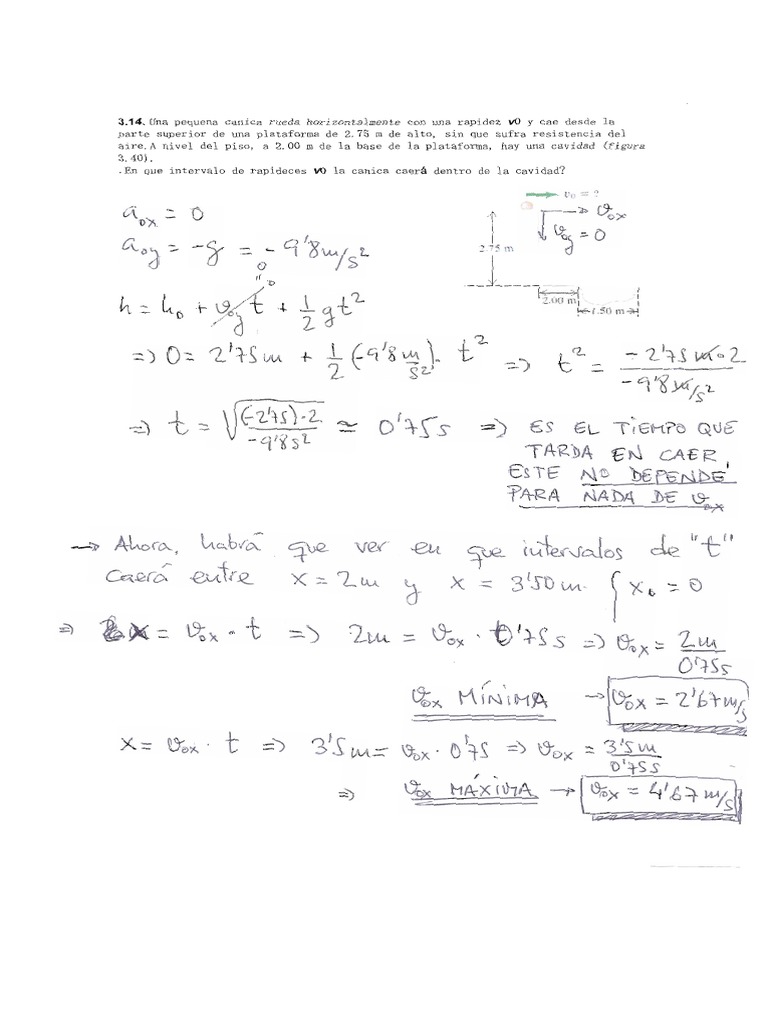 3.14. Una pequena canica rueda horizontalmente con una rapidez v0 y cae desde la
parte superior de una plataforma de 2.75 m de alto, sin que sufra resistencia del
aire. A nivel del piso, a 2.00 m de la base de la plataforma, hay una cavidad (figura
3.40).
.En que intervalo de rapideces v0 la canica caerá dentro de la cavidad?
v₀ = ?
a₀ₓ = 0
→ v₀ₓ
v₀y = 0
a₀y = -g = -9'8 m/s²
2.75 m
h = h₀ + v₀y t + 1/2 g t²
0
2.00 m
1.50 m
=> 0 = 2'75m + 1/2 (-9'8 m/s²) · t² => t² = -2'75m · 2 / -9'8 m/s²
=> t = √((-2'75)·2 / -9'8 s²) ≃ 0'75 s => ES EL TIEMPO QUE
TARDA EN CAER,
ESTE NO DEPENDE
PARA NADA DE v₀ₓ
→ Ahora, habrá que ver en que intervalos de "t"
caerá entre x = 2m y x = 3'50m. { x₀ = 0
=> x = v₀ₓ · t => 2m = v₀ₓ · 0'75s => v₀ₓ = 2m / 0'75s
v₀ₓ MÍNIMA → v₀ₓ = 2'67 m/s
x = v₀ₓ · t => 3'5m = v₀ₓ · 0'75 => v₀ₓ = 3'5m / 0'75s
=> v₀ₓ MÁXIMA → v₀ₓ = 4'67 m/s